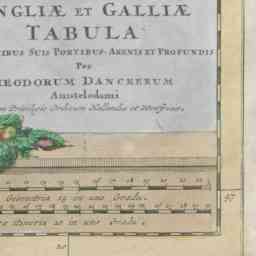 NGLIÆ ET GALLIÆ
TABULA
IBUS SUIS PORTIBUS ARENIS ET PROFUNDIS
Per
HEODORUM DANCKERUM
Amstelodami
Privilegio Ordinum Hollandiæ et Westfrisiæ
Geometria 15 in uno Gradu.
itineris 20 in uno Gradu.
47